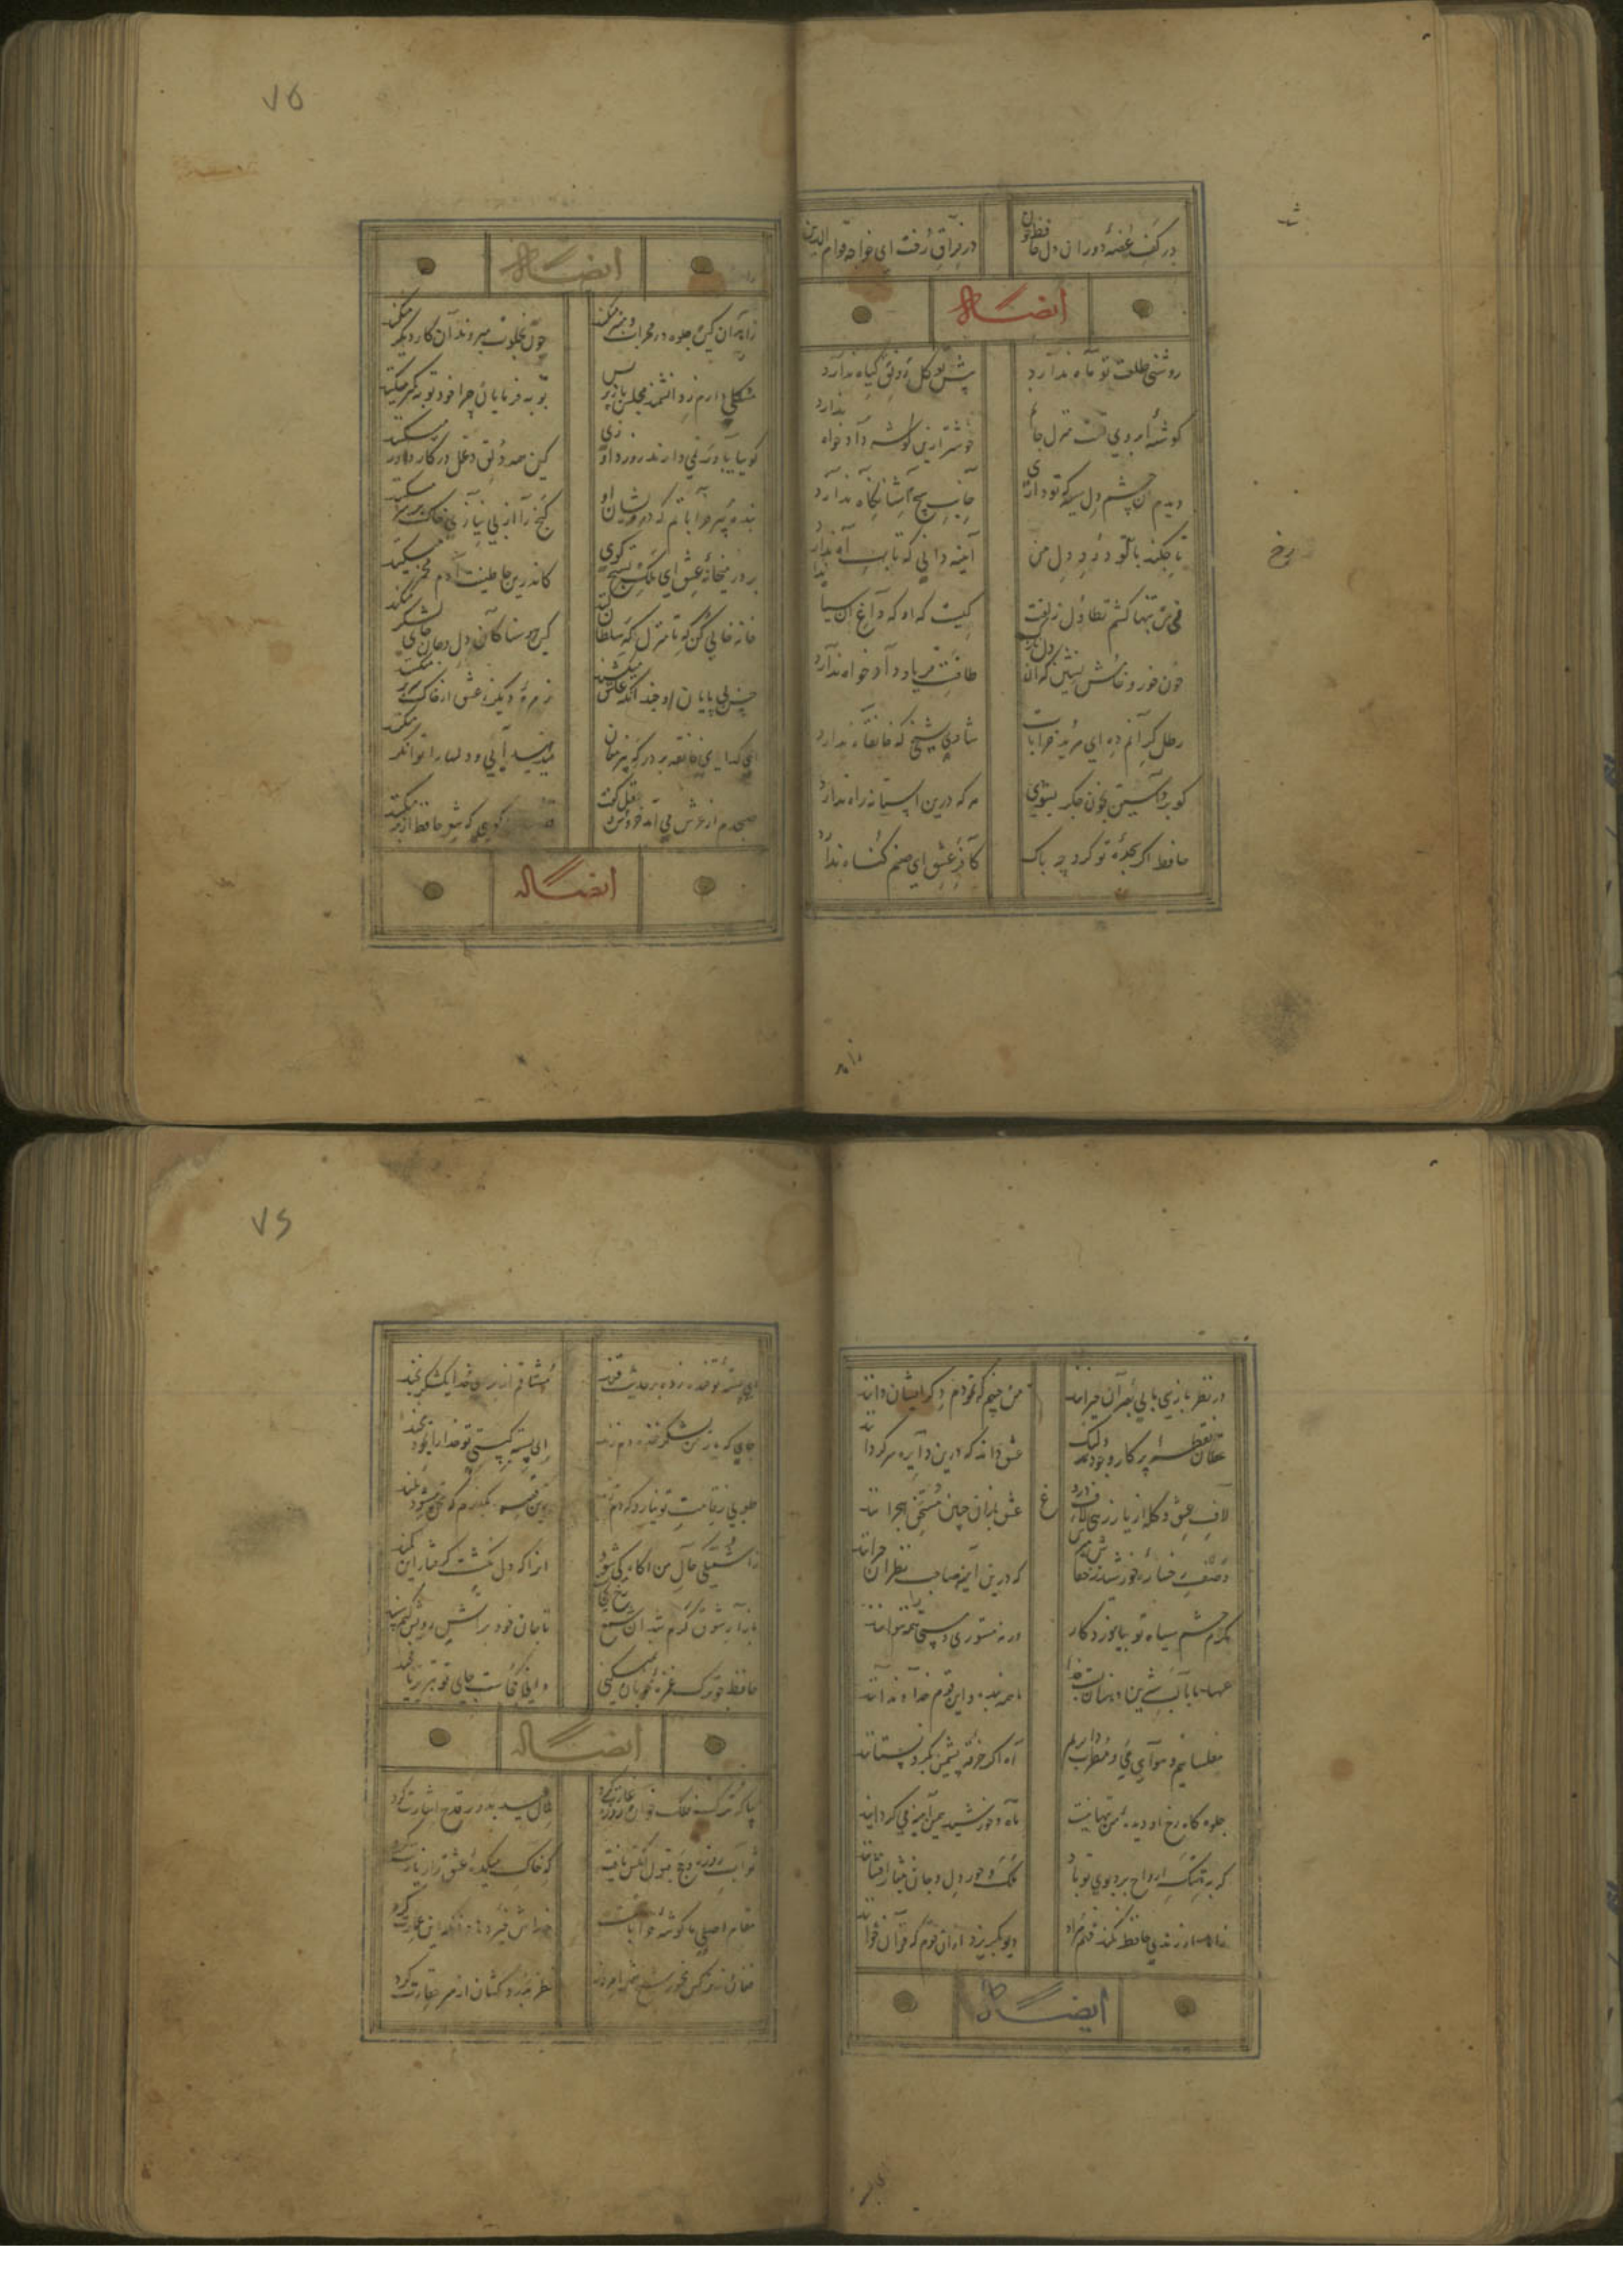 درکف غصهٔ دوران دل حافظ خون
در فراق رخت ای خواجه قوام الدین
ایضاً له
روشنی طلعت تو ماه ندارد
پیش تو گل رونق گیاه ندارد
گوشهٔ ابروی تست منزل جانم
خوشتر ازین گوشه دادخواه ندارد
دیدم آن چشم دل سیه که تو داری
جانب هیچ آشنا نگاه ندارد
تا چکند با تو دود دل من
آینه دانی که تاب آه ندارد
نی من تنها کشم تطاول زلفت
کیست که او که داغ آن سیاه ندارد
خون خور و خامش نشین که آن دل نازک
طاقت فریاد دادخواه ندارد
رطل گرانم ده ای مرید خرابات
شادی شیخی که خانقاه ندارد
گو برو آستین بخون جگر بشوی
هر که درین آستانه راه ندارد
حافظ اگر سجدهٔ تو کرد چه باک
کافر عشق ای صنم گناه ندارد
شد
رخ
زاهد
۷۵
ایضاً له
زاهدان کین جلوه در محراب و منبر میکنند
چون بخلوت میروند آن کار دیگر میکنند
مشکلی دارم ز دانشمند مجلس باز پرس
توبه فرمایان چرا خود توبه کمتر میکنند
گوییا باور نمی دارند روز داوری
کین همه قلب و دغل در کار داور میکنند
بندهٔ پیر خراباتم که درویشان او
گنج را از بی نیازی خاک بر سر میکنند
بر در میخانهٔ عشق ای ملک تسبیح گوی
کاندرین جا طینت آدم مخمر میکنند
خانه خالی کن که تا منزل کند سلطان
کین هوسناکان دل و جان جای لشکر میکنند
حسن بی پایان او چندانکه عاشق میکشند
زمرهٔ دیگر بعشق از خاک سر بر میکنند
ای گدای خانقه بر در که پیر مغان
میدهند آبی و دلها را توانگر میکنند
صبحدم از عرش می آمد خروشی عقل گفت
که شعر حافظ از بر میکنند
ایضاً له
در نظر بازی ما بی بصران حیرانند
من چنینم که نمودم دگر ایشان دانند
عاقلان نقطهٔ پرگار وجودند ولیک
عشق داند که درین دایره سرگردانند
لاف عشق و گله از یار زهی لاف دروغ
عشق بازان چنین مستحق هجرانند
وصف رخسارهٔ خورشید ز خفاش مپرس
که درین آینه صاحب نظران حیرانند
مگرم چشم سیاه تو بیاموزد کار
ورنه مستوری و مستی همه نتوانند
عهد ما با لب شیرین دهنان بست خدا
ما همه بنده و این قوم خداوندانند
مفلسانیم و هوای می و مطرب داریم
آه اگر خرقه پشمین بگرو نستانند
جلوه گاه رخ او دیدهٔ من تنها نیست
ماه و خورشید همین آینه می گردانند
گر به نزهتگه ارواح برد بوی تو باد
ملک و حور دل و جان بنثار افشانند
زاهد ار رندی حافظ نکند فهم مراد
دیو بگریزد ازان قوم که قرآن خوانند
ایضاً له
۷۶
ای پستهٔ تو خنده زده بر حدیث قند
مشتاقم از برای خدا یک شکر بخند
جایی که یار من بشکر خنده دم زند
ای پسته کیستی تو خدا را بخود مخند
طوبی ز قامت تو نیارد که دم زند
زین قصه بگذرم که سخن میشود بلند
ز آشفتگی حال من آگاه کی شود
آنرا که دل نگشت گرفتار این کمند
بازار شوق گرم شد آن شمع رخ کجاست
تا جان خود بر آتش رویش کنم سپند
حافظ تو ترک غمزهٔ خوبان نمیکنی
دانی کجاست جای تو خوارزم یا خجند
ایضاً له
بیا که ترک فلک خوان روزه غارت کرد
هلال عید بدور قدح اشارت کرد
ثواب روزه و حج قبول آنکس یافت
که خاک میکدهٔ عشق را زیارت کرد
مقام اصلی ما گوشهٔ خرابات است
خداش خیر دهاد آنکه این عمارت کرد